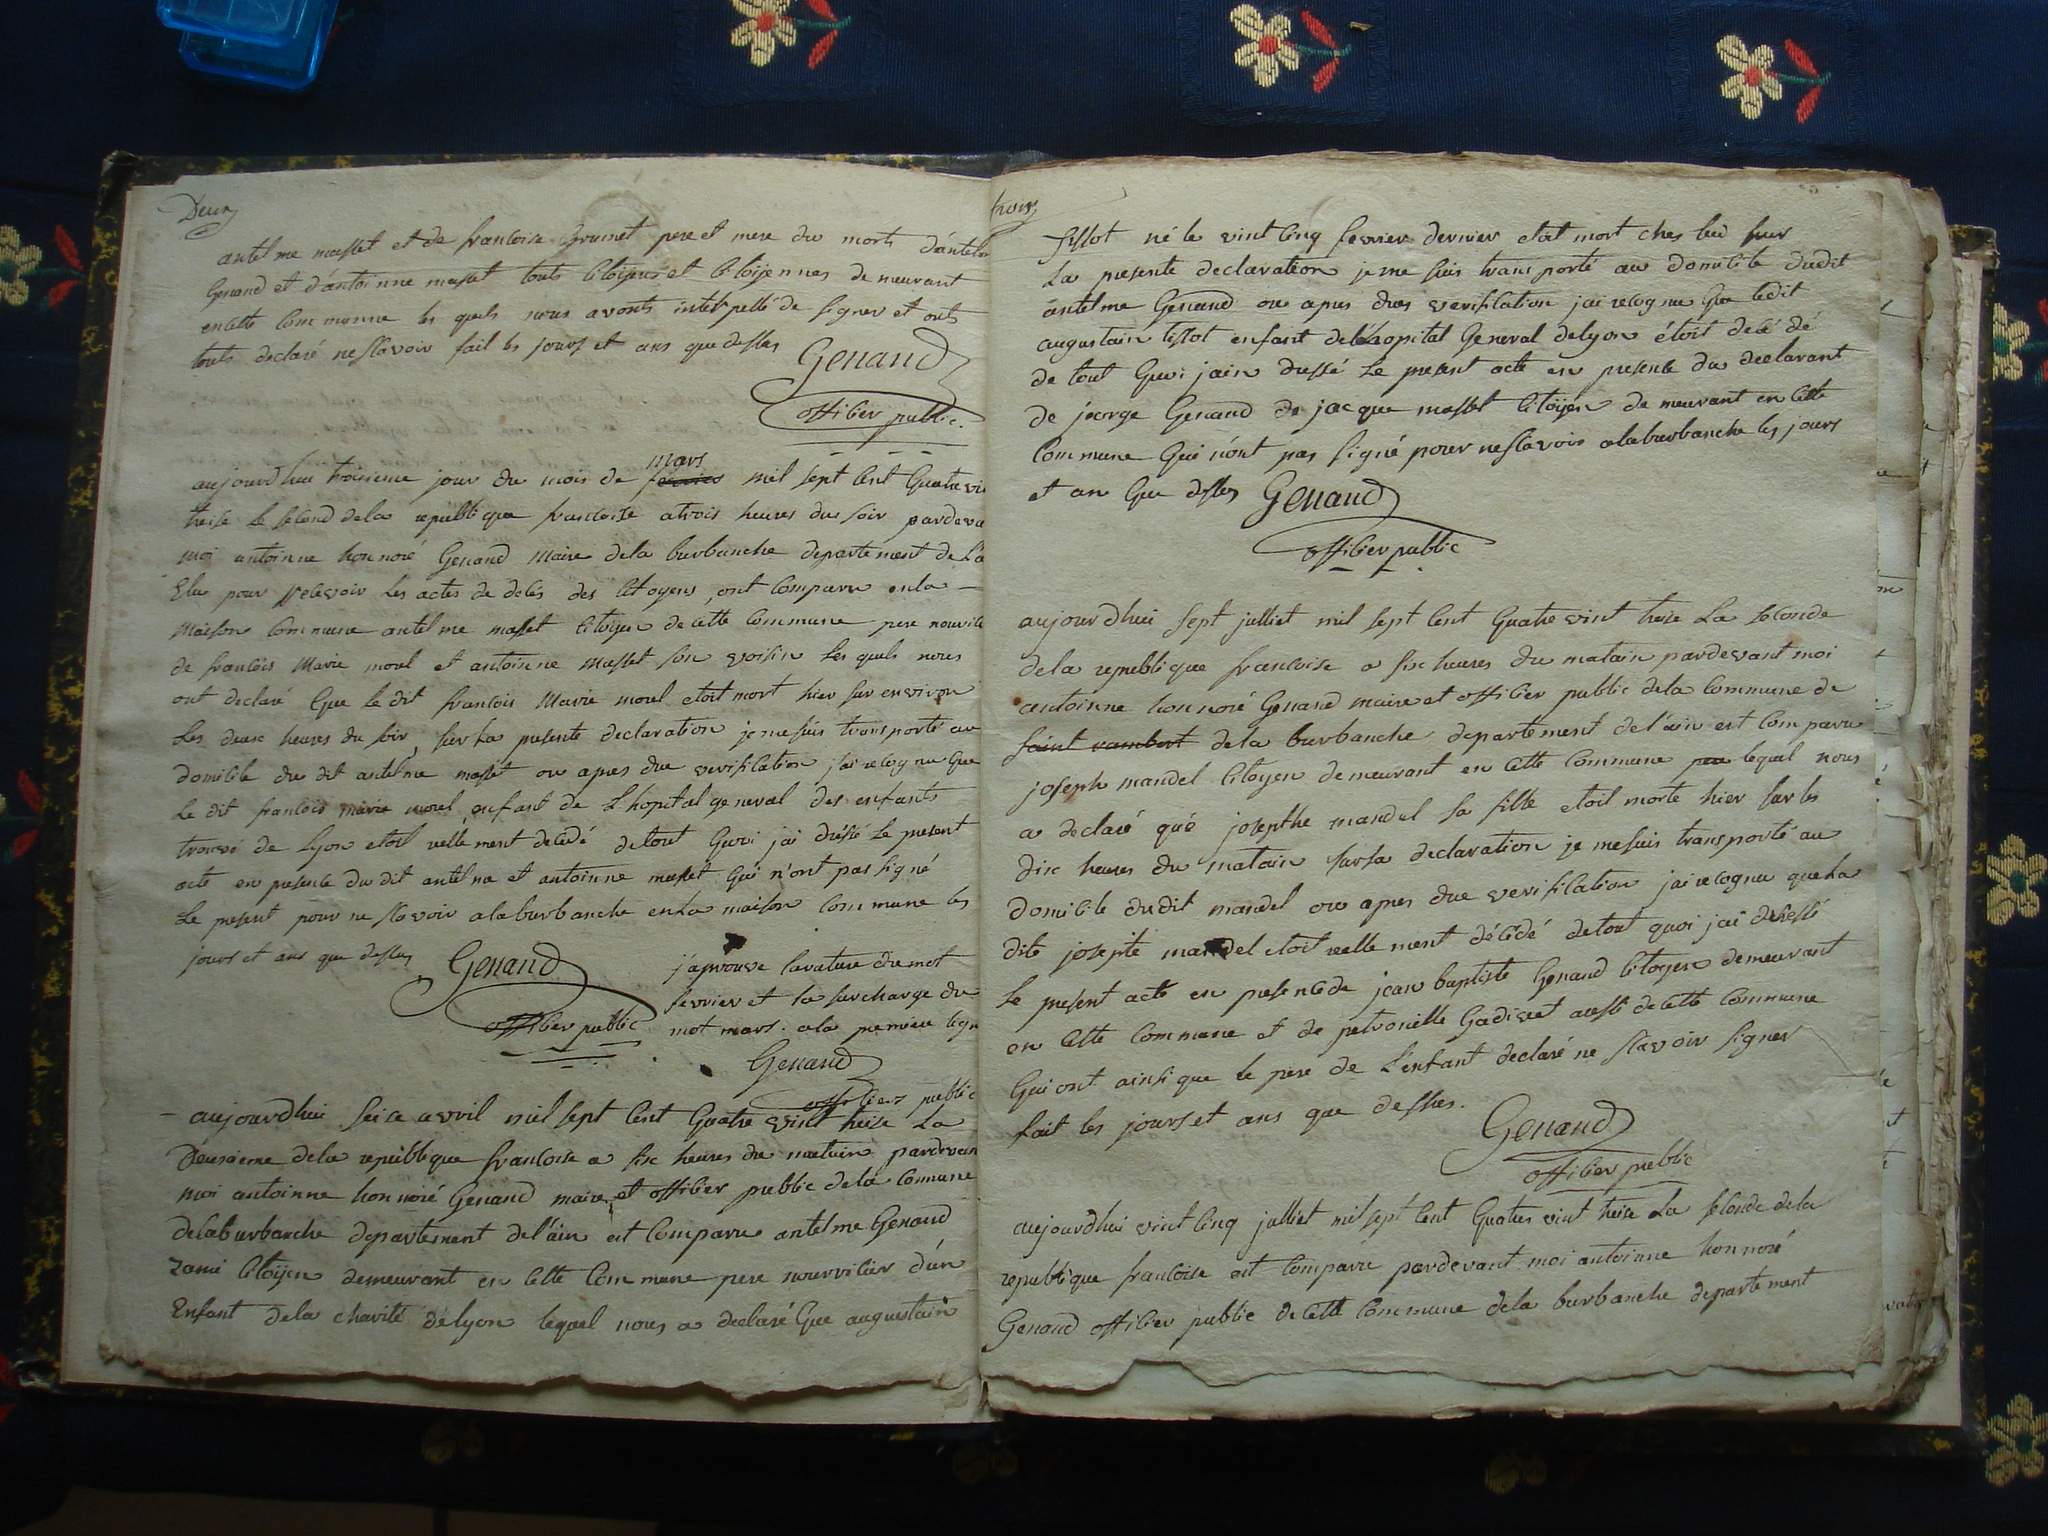 Deux
antelme masset et de francoise Brunet pere et mere du morts d'antelm
Genand et d'antoinne masset touts Citoijens et Citoijennes de meurant
encette Commune les quels nous avonts interpellé de signer et onts
touts declaré nesavoir fait les jours et ans que dessus
Genand
officier public.
mars
aujourdhui troisieme jour du mois de fevrier mil sept Cent Quatre vin
treise Le second dela republique francoise atrois heures du soir pardeva
moi antoinne honnoré Genand Maire dela burbanche departement de L'a
Elu pour recevoir Les actes de décès des Citoyens, ont Comparu enla
Maison Commune antelme masset Citoijen decette Commune pere nourricie
de francois Marie morel et antoinne Masset son voisin Les quels nous
ont declaré Que Le dit francois Marie morel etoit mort hier sur environ
Les deux heures du soir, sur La presente declaration je me suis transporté au
domicile du dit antelme masset ou apres due verification j'ai recognu Que
Le dit francois marie morel enfant de L'hopital general des enfants
trouvé de Lyon etoit reellement decedé detout Quoi j'ai dréssé Le present
acte en presente du dit antelme et antoinne masset Qui n'ont pas signé
Le present pour ne savoir alaburbanche enLa maison Commune les
jours et ans que dessus
Genand
officier public
j'aprouve la rature du mot
fevrier et la surcharge du
mot mars. ala premiere lign
Genand
officier public
aujourdhui seise avril mil sept Cent Quatre vint treise La
Deuxieme dela republique francoise a six heures du matain pardevan
moi antoinne honnoré Genand maire et officier public dela Commune
delaburbanche departement del'ain est Comparu antelme Genand
Citoijen demeurant en Cette Commune pere nourricier d'un
Enfant dela charité de lyon lequel nous a declaré Que augustain
trois
tissot né le vint Cinq fevrier dernier etoit mort ches lui sur
La presente declaration je me suis transporté au domicile dudit
antelme Genand ou apres dues verification j'ai recognu Que ledit
augustain tissot enfant del'hopital General delyon étoit decédé
de tout Quoi jai dressé Le present acte en presente du declarant
de jeorge Genand de jacque masset Citoijen de meurant en Cette
Commune Qui n'ont pas signé pour nesavoir alaburbanche les jours
et an Que dessus
Genand
officier public
aujourdhui sept julliet mil sept Cent Quatre vint treise La seconde
dela republique francoise a six heures du matain pardevant moi
antoinne honnoré Genand maire et officier public dela Commune de
saint rambert dela burbanche departement de l'ain est Comparu
joseph mandel Citoyen demeurant en Cette Commune lequel nous
a declaré qué josepthe mandel sa fille etoit morte hier sur les
dix heures du matain sursa declaration je me suis transporté au
domicile dudit mandel ou apres due verification jai recognu queLa
dite josepte mandel etoit reellement décédé detout quoi jai dressé
Le present acte en presencede jean baptiste Genand Citoyen demeurant
en Cette Commune et de petronille Gadivet aussi decette Commune
Qui ont ainsique le pere de L'enfant declaré ne savoir signer
fait les jours et ans que dessus.
Genand
officier public
aujourdhui vint Cinq julliet mil sept Cent Quatres vint treise La seconde dela
republique francoise est Comparu pardevant moi antoinne honnoré
Genand officier public decette Commune dela burbanche departement